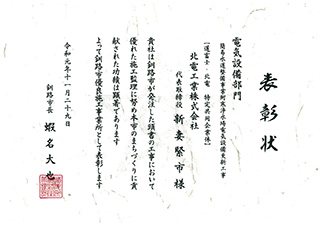 表彰状
電気設備部門
簡易水道整備事業阿寒浄水場電気設備更新工事
【道富士・北電 特定共同企業体】
北電工業株式会社
代表取締役 新妻 緊市 様
貴社は釧路市が発注した頭書の工事において
優れた施工監理に努め本市のまちづくりに貢
献された功績は顕著であります
よって釧路市優良施工事業所として表彰します
令和元年十一月二十九日
釧路市長 蝦名大也